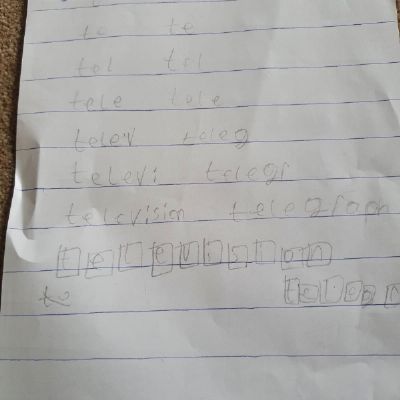 to te
tel tel
tele tele
telev teleg
televi telegr
television telegraph
television
to teleg